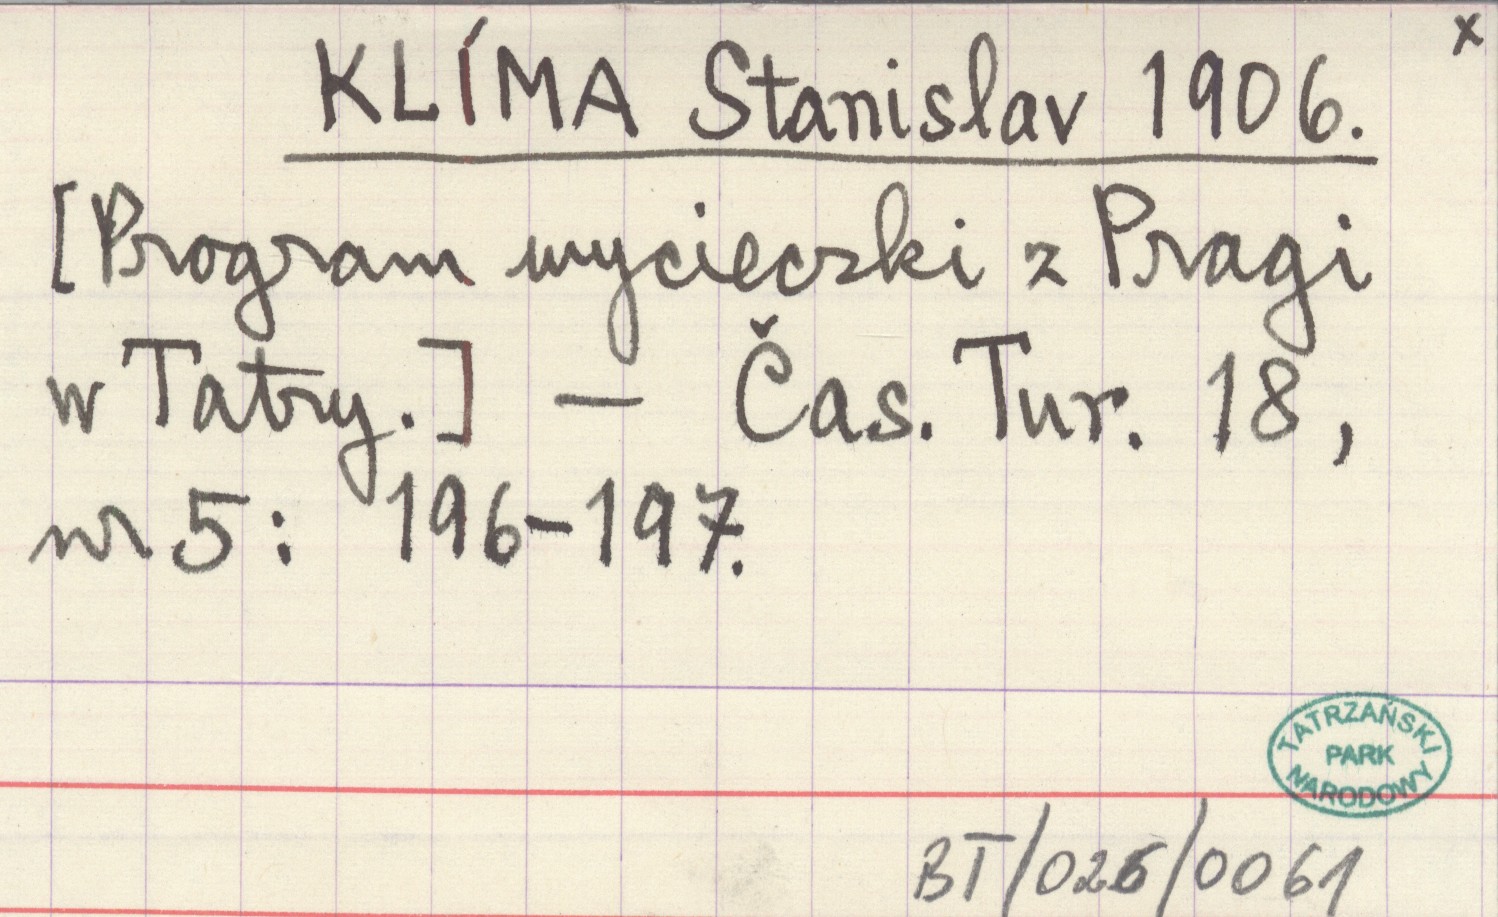 x
KLÍMA Stanislav 1906.
[Program wycieczki z Pragi
w Tatry.] — Čas. Tur. 18,
nr 5: 196-197.
TATRZAŃSKI
PARK
NARODOWY
BT/026/0061